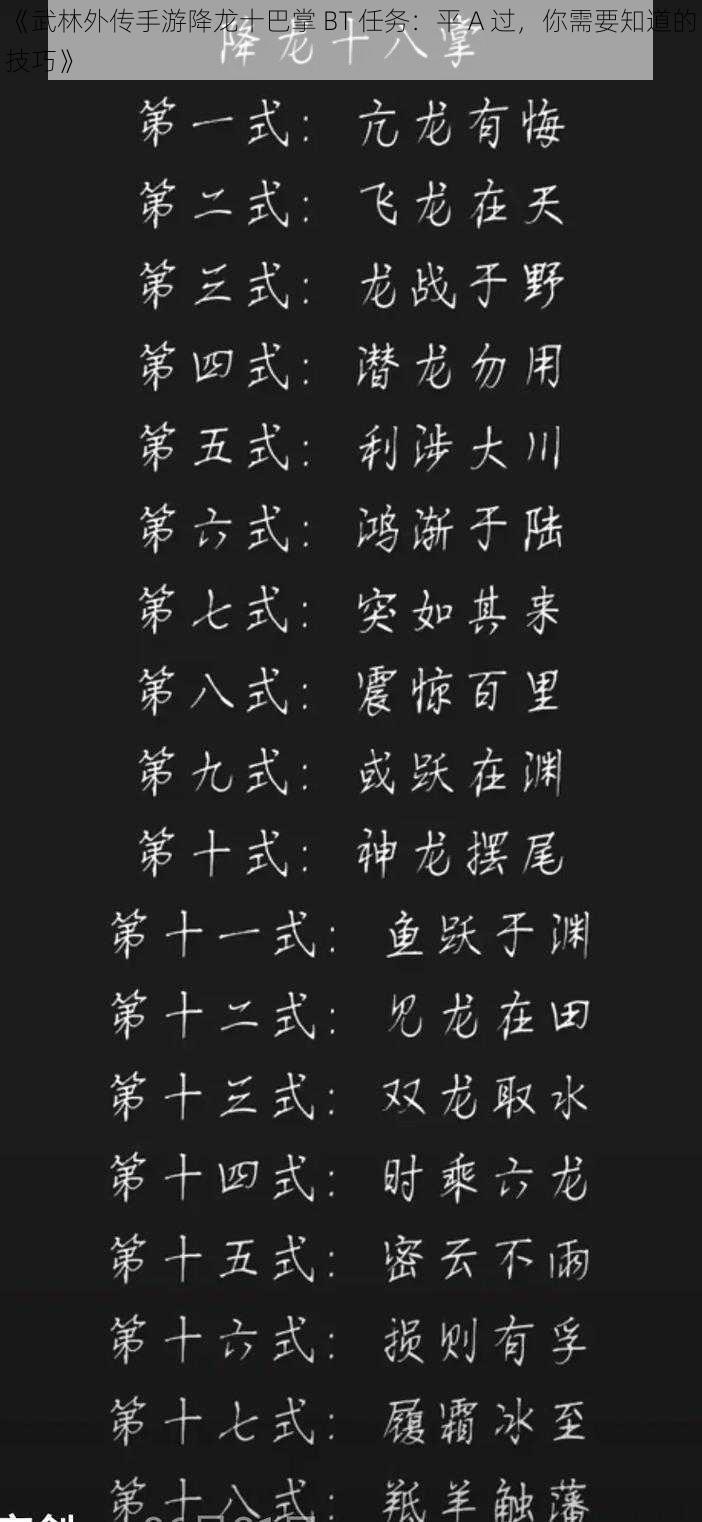 《武林外传手游降龙十巴掌 BT 任务：平 A 过，你需要知道的
技巧》
降龙十八掌
第一式：亢龙有悔
第二式：飞龙在天
第三式：龙战于野
第四式：潜龙勿用
第五式：利涉大川
第六式：鸿渐于陆
第七式：突如其来
第八式：震惊百里
第九式：或跃在渊
第十式：神龙摆尾
第十一式：鱼跃于渊
第十二式：见龙在田
第十三式：双龙取水
第十四式：时乘六龙
第十五式：密云不雨
第十六式：损则有孚
第十七式：履霜冰至
第十八式：羝羊触藩